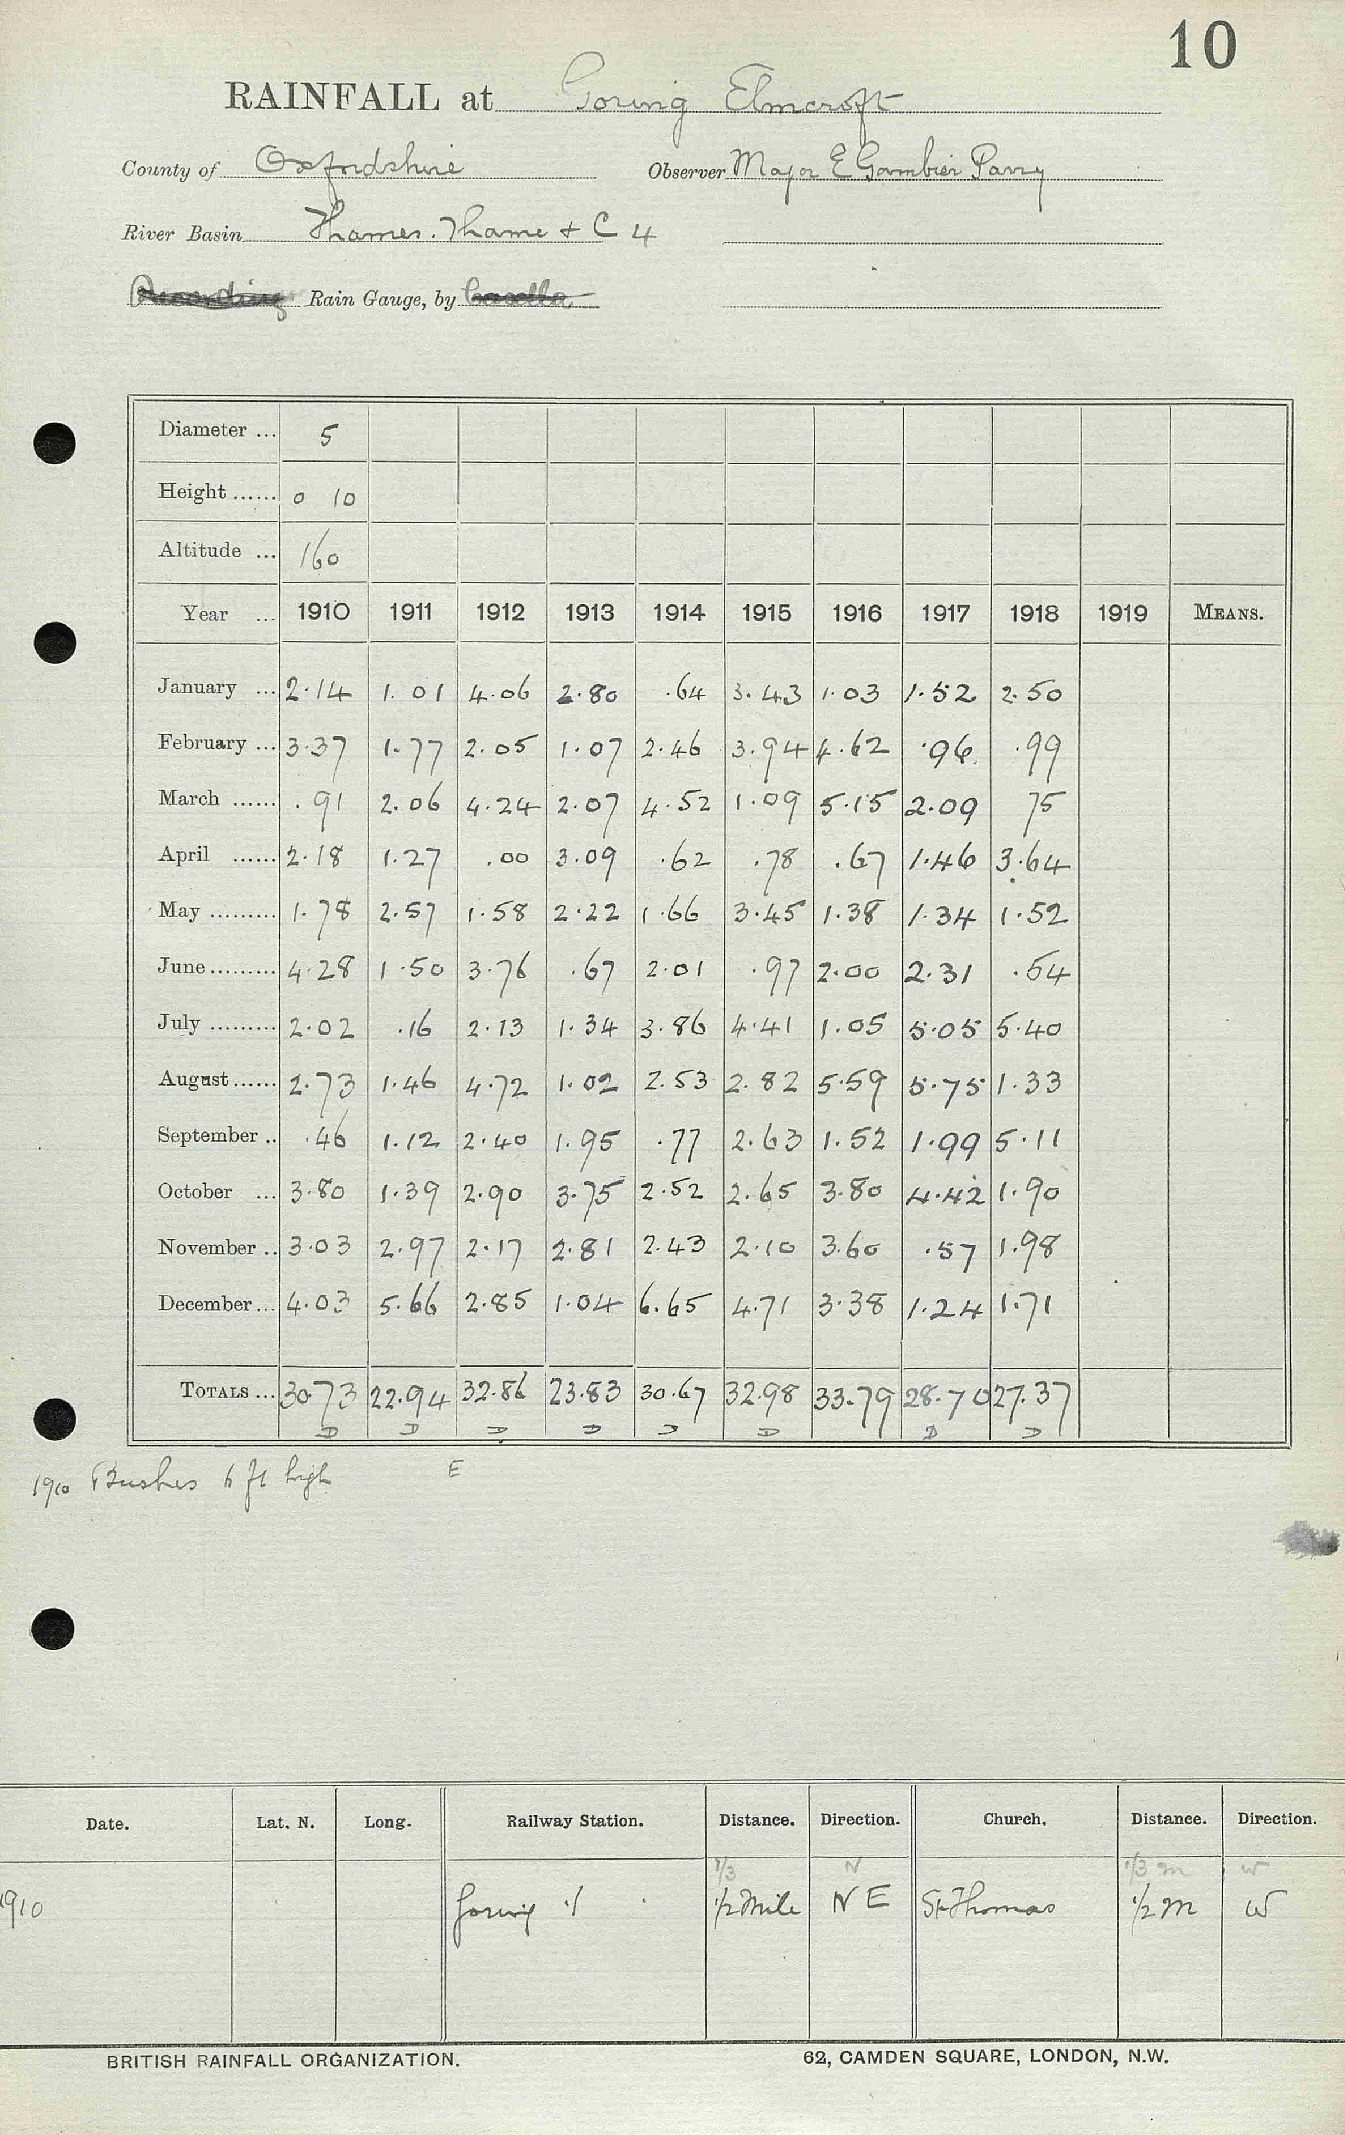 10
RAINFALL at Goring Elmcroft
County of Oxfordshire Observer Major E Gambier Parry
River Basin Thames. Thame + C 4
Recording Rain Gauge, by Casella
Diameter ... 5
Height ...... 0 10
Altitude ... 160
Year ... 1910 1911 1912 1913 1914 1915 1916 1917 1918 1919 MEANS.
January ... 2.14 1.01 4.06 2.80 .64 3.43 1.03 1.52 2.50
February ... 3.37 1.77 2.05 1.07 2.46 3.94 4.62 .96 .99
March ...... .91 2.06 4.24 2.07 4.52 1.09 5.15 2.09 75
April ...... 2.18 1.27 .00 3.09 .62 .78 .67 1.46 3.64
May ......... 1.78 2.57 1.58 2.22 1.66 3.45 1.38 1.34 1.52
June ......... 4.28 1.50 3.76 .67 2.01 .97 2.00 2.31 .54
July ......... 2.02 .16 2.13 1.34 3.86 4.41 1.05 5.05 5.40
August ...... 2.73 1.46 4.72 1.02 2.53 2.82 5.59 5.75 1.33
September .. .46 1.12 2.40 1.95 .77 2.63 1.52 1.99 5.11
October ... 3.80 1.39 2.90 3.75 2.52 2.65 3.80 4.42 1.90
November .. 3.03 2.97 2.17 2.81 2.43 2.10 3.60 .57 1.98
December ... 4.03 5.66 2.85 1.04 6.65 4.71 3.38 1.24 1.71
TOTALS ... 30.73 22.94 32.86 23.83 30.67 32.98 33.79 28.70 27.37
D D D D D D D D
1910 Bushes 6 ft high E
Date. Lat. N. Long. Railway Station. Distance. Direction. Church. Distance. Direction.
1/3 N 1/3 m W
1910 Goring 1/2 Mile N E St Thomas 1/2 m W
BRITISH RAINFALL ORGANIZATION. 62, CAMDEN SQUARE, LONDON, N.W.